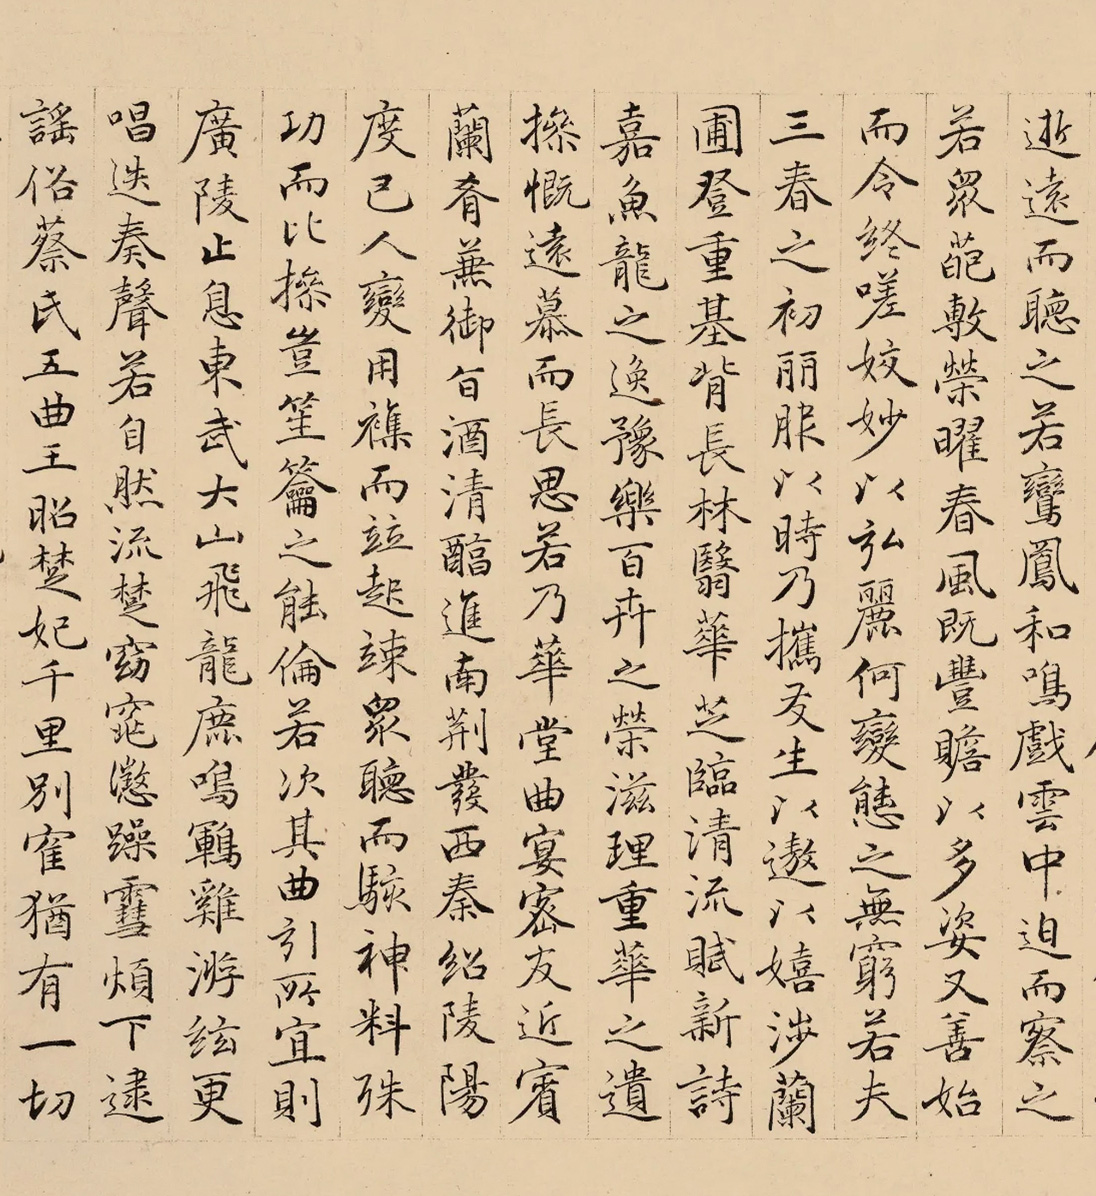 逝遠而聽之若鸞鳳和鳴戲雲中迫而察之
若眾葩敷榮曜春風既豐贍以多姿又善始
而令終嗟姣妙以弘麗何變態之無窮若夫
三春之初丽服以時乃攜友生以遨以嬉涉蘭
圃登重基背長林翳華芝臨清流賦新詩
嘉魚龍之逸豫樂百卉之榮滋理重華之遺
操慨遠慕而長思若乃華堂曲宴密友近賓
蘭肴兼御旨酒清醕進南荊發西秦紹陵陽
度已人變用襍而竝起竦眾聽而駭神料殊
功而比操豈笙籥之能倫若次其曲引所宜則
廣陵止息東武大山飛龍鹿鳴鵾雞游絃更
唱迭奏聲若自然流楚窈窕懲躁雪煩下逮
謠俗蔡氏五曲王昭楚妃千里別寉猶有一切